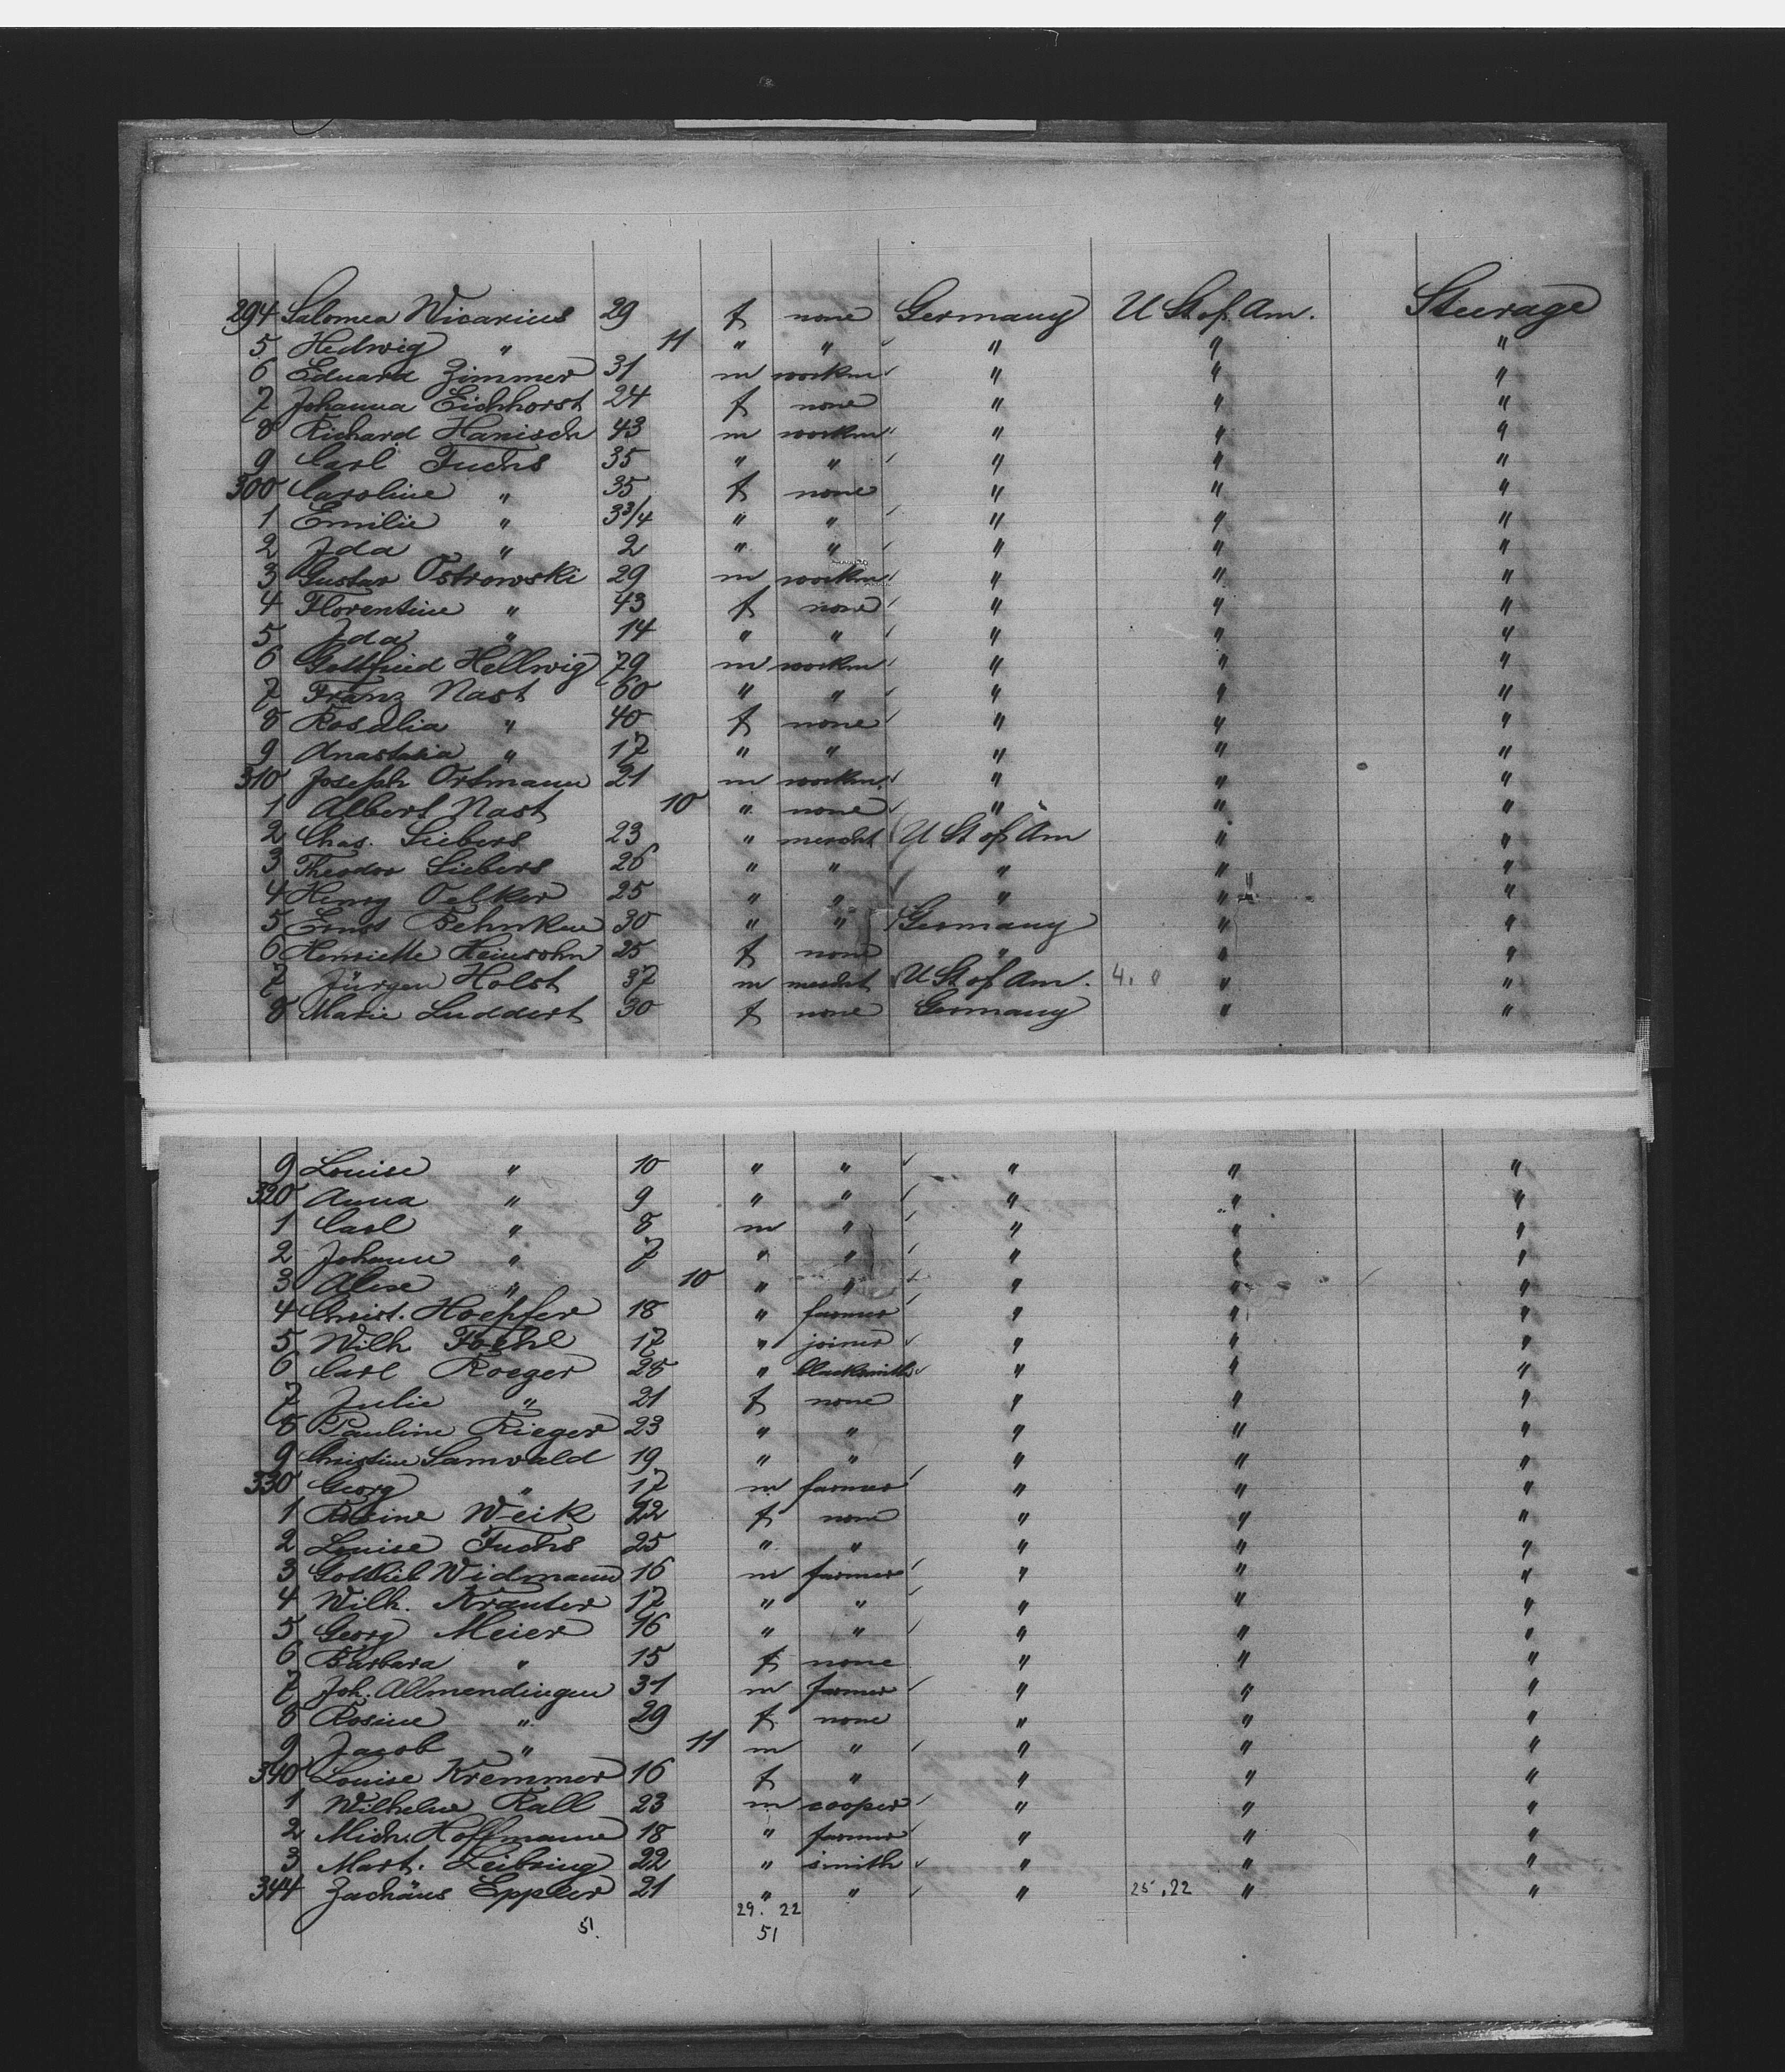 294 Salomea Wicarius 29 f none Germany U St of Am. Steerage
5 Hedwig " 11 " " " " "
6 Eduard Zimmer 31 m workm " " "
7 Johanna Eichhorst 24 f none " " "
8 Richard Hanisch 43 m workm " " "
9 Carl Fuchs 35 " " " " "
300 Caroline " 35 f none " " "
1 Emilie " 3 3/4 " " " " "
2 Ida " 2 " " " " "
3 Gustav Ostrowski 29 m workm " " "
4 Florentine " 43 f none " " "
5 Ida " 14 " " " " "
6 Gottfried Hellwig 79 m workm " " "
7 Franz Nast 60 " " " " "
8 Rosalia " 40 f none " " "
9 Anastasia " 17 " " " " "
310 Joseph Ortmann 21 m workm. " " "
1 Albert Nast 10 " none " " "
2 Chas. Siebers 23 " mercht U St of Am " "
3 Theodor Siebers 26 " " " " "
4 Henry Oelker 25 " " " " "
5 Ernst Behnken 30 " " Germany " "
6 Henriette Heinsohn 25 f none " " "
7 Jürgen Holst 37 m mercht U St of Am. 4. 0 " "
8 Marie Luddert 30 f none Germany " "
9 Louise " 10 " " " " "
320 Anna " 9 " " " " "
1 Carl " 8 m " " " "
2 Johann " 7 " " " " "
3 " 10 " " " " "
4 Christ. Hoepfer 18 " farmer " " "
5 Wilh Foehl 17 " joiner " " "
6 Carl Roeger 28 " blacksmith " " "
7 Julie " 21 f none " " "
8 Pauline Rieger 23 " " " " "
9 Christine Samwald 19 " " " " "
330 Georg " 17 m farmer " " "
1 Rosine Weik 22 f none " " "
2 Louise Fuchs 25 " " " " "
3 Gottlieb Widmann 16 m farmer " " "
4 Wilh. Krauter 17 " " " " "
5 Georg Meier 16 " " " " "
6 Barbara " 15 f none " " "
7 Joh. Allmendingen 31 m farmer " " "
8 Rosine " 29 f none " " "
9 Jacob " 11 m " " " "
340 Louise Kremmer 16 f " " " "
1 Wilhelm Rall 23 m cooper " " "
2 Mich. Hoffmann 18 " farmer " " "
3 Mart. Leibring 22 " smith " " "
344 Zachäus Eppler 21 " " " 25.22 " "
29. 22
51. 51